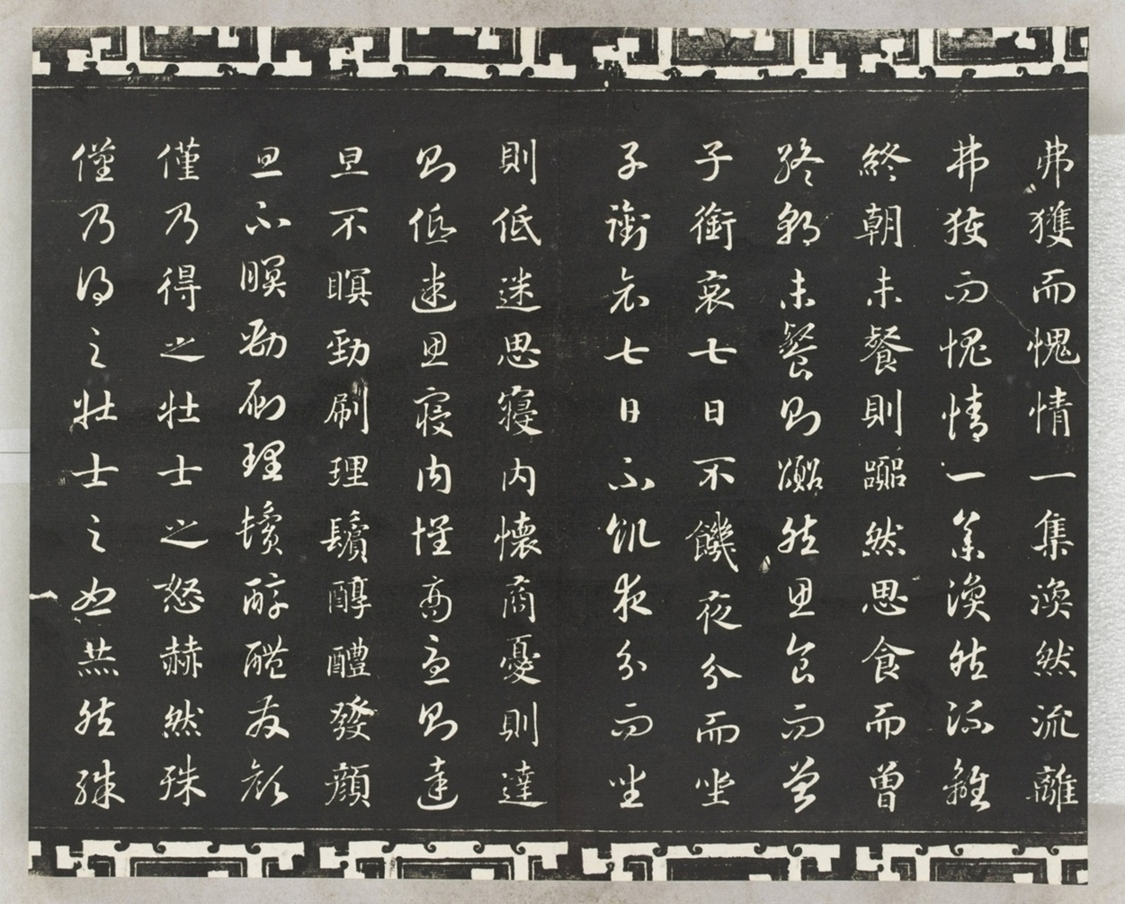 弗獲而愧情一集渙然流離
弗獲而愧情一集渙然流離
終朝未餐則嚻然思食而曾
終朝未餐則嚻然思食而曾
子銜哀七日不饑夜分而坐
子銜哀七日不飢夜分而坐
則低迷思寢内懷商憂則達
則低迷思寢内懷商憂則達
旦不瞑勁刷理鬢醇醴發顏
旦不瞑勁刷理鬢醇醴發顏
僅乃得之壯士之怒赫然殊
僅乃得之壯士之怒赫然殊